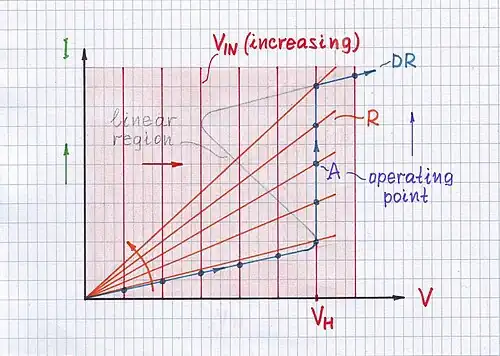 I
V_IN (increasing)
DR
linear
region
R
A
operating
point
V_H
V